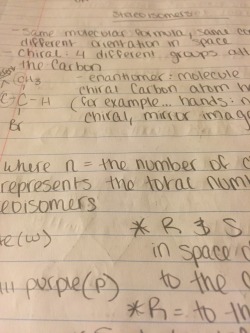 Stereoisomers
- same molecular formula, same
different orientation in space
- chiral: 4 different groups
the Carbon
CH3
- enantiomer: molecule
C-C-H
chiral Carbon atom
(for example... hands:
Br
chiral, mirror
where n = the number of
represents the total
* R & S
in space
purple(p)
to the
* R = to